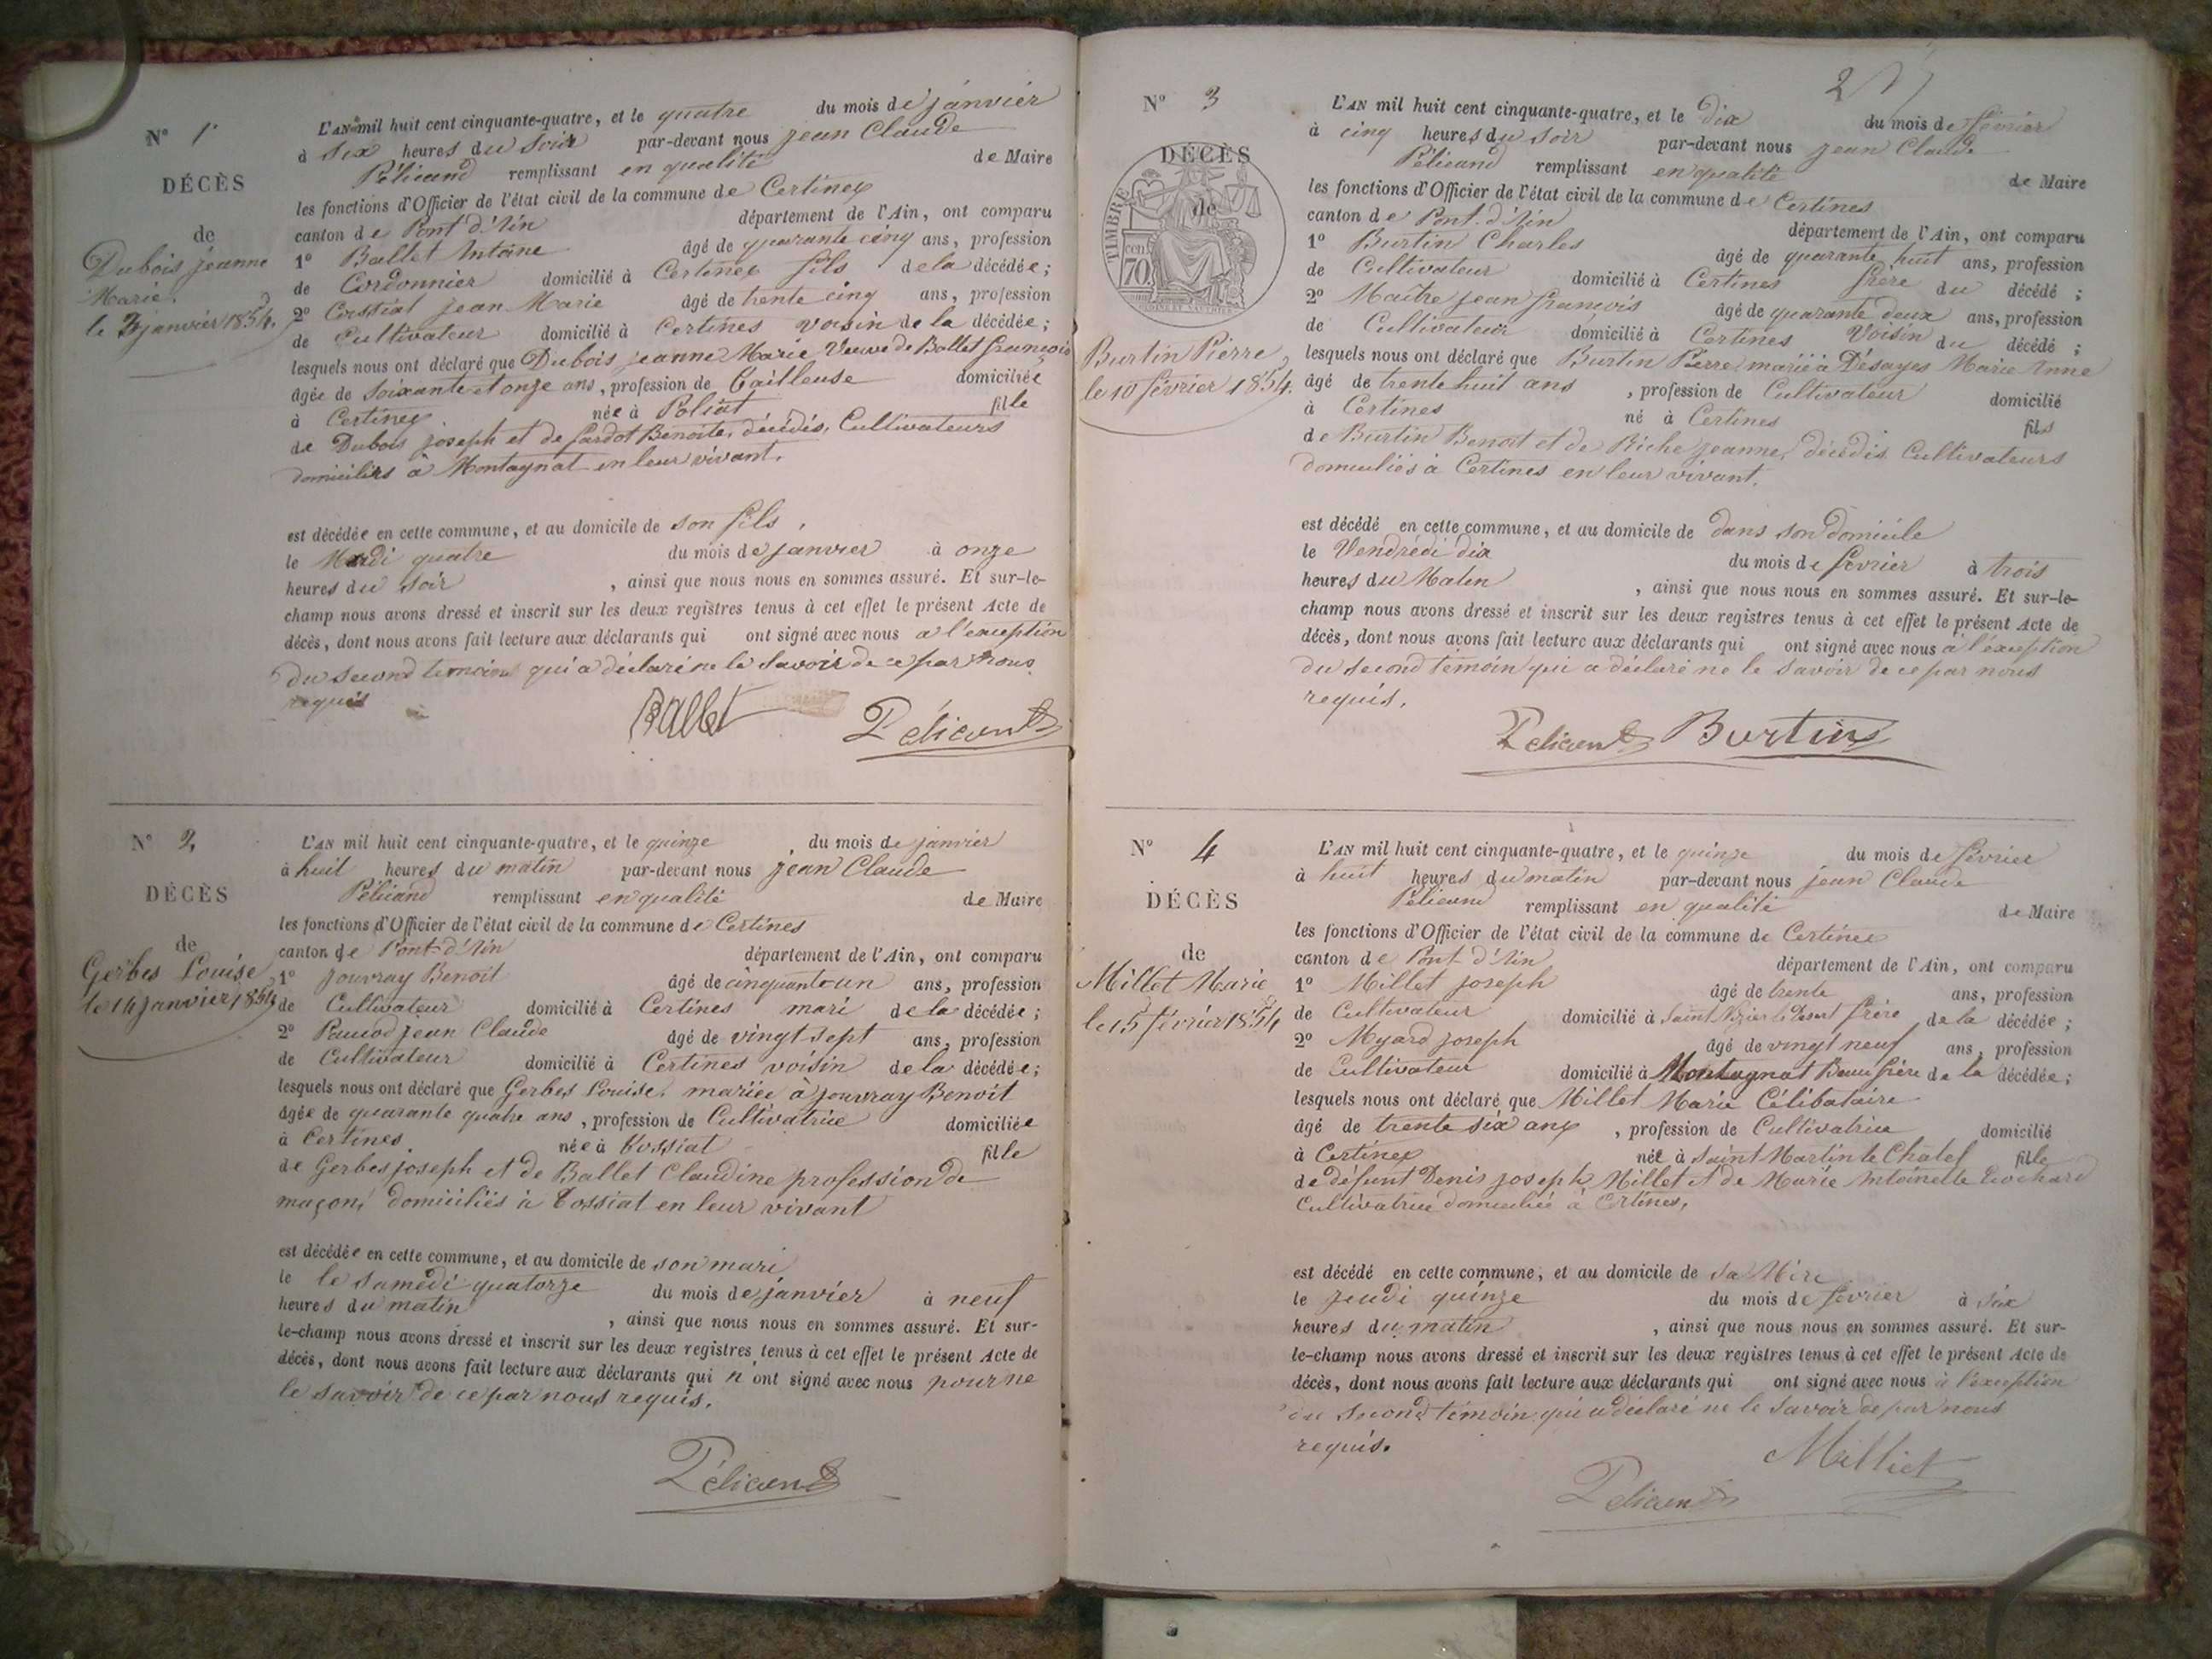 N° 1
DÉCÈS
de
Dubois jeanne
Marie
le 3 janvier 1854.
L'AN mil huit cent cinquante-quatre, et le quatre du mois de janvier
à six heures du soir par-devant nous jean Claude
Pélicand remplissant en qualité de Maire
les fonctions d'Officier de l'état civil de la commune de Certines
canton de Pont d'Ain département de l'Ain, ont comparu
1° Ballet Antoine âgé de quarante cinq ans, profession
de Cordonnier domicilié à Certines fils de la décédée;
2° jean Marie âgé de trente cinq ans, profession
de Cultivateur domicilié à Certines voisin de la décédée;
lesquels nous ont déclaré que Dubois jeanne Marie Veuve de Ballet françois
âgée de soixante et onze ans, profession de Tailleuse domiciliée
à Certines née à Poliat fille
de Dubois joseph et de Benoite, décédés, Cultivateurs
domiciliés à Montagnat en leur vivant.
est décédée en cette commune, et au domicile de son fils,
le Mardi quatre du mois de janvier à onze
heures du soir, ainsi que nous nous en sommes assuré. Et sur-le-
champ nous avons dressé et inscrit sur les deux registres tenus à cet effet le présent Acte de
décès, dont nous avons fait lecture aux déclarants qui ont signé avec nous a l'exception
du second temoins qui a déclaré ne le savoir de ce par nous
requis
Ballet Pélicand
N° 2
DÉCÈS
de
Gerbes Louise
le 14 janvier 1854
L'AN mil huit cent cinquante-quatre, et le quinze du mois de janvier
à huit heures du matin par-devant nous jean Claude
Pélicand remplissant en qualité de Maire
les fonctions d'Officier de l'état civil de la commune de Certines
canton de Pont-d'Ain département de l'Ain, ont comparu
1° jouvray Benoit âgé de cinquante un ans, profession
de Cultivateur domicilié à Certines mari de la décédée;
2° jean Claude âgé de vingt sept ans, profession
de Cultivateur domicilié à Certines voisin de la décédée;
lesquels nous ont déclaré que Gerbes Louise, mariée à jouvray Benoit
âgée de quarante quatre ans, profession de Cultivatrice domiciliée
à Certines née à Tossiat fille
de Gerbes joseph et de Ballet Claudine profession de
maçon, domiciliés à Tossiat en leur vivant
est décédée en cette commune, et au domicile de son mari
le le samedi quatorze du mois de janvier à neuf
heures du matin, ainsi que nous nous en sommes assuré. Et sur-
le-champ nous avons dressé et inscrit sur les deux registres tenus à cet effet le présent Acte de
décès, dont nous avons fait lecture aux déclarants qui n'ont signé avec nous pour ne
le savoir de ce par nous requis.
Pélicand
2
N° 3
DÉCÈS
de
TIMBRE
70
Burtin Pierre
le 10 février 1854.
L'AN mil huit cent cinquante-quatre, et le dix du mois de février
à cinq heures du soir par-devant nous jean Claude
Pélicand remplissant en qualité de Maire
les fonctions d'Officier de l'état civil de la commune de Certines
canton de Pont-d'Ain département de l'Ain, ont comparu
1° Burtin Charles âgé de quarante huit ans, profession
de Cultivateur domicilié à Certines frère du décédé;
2° Maître jean françois âgé de quarante deux ans, profession
de Cultivateur domicilié à Certines Voisin du décédé;
lesquels nous ont déclaré que Burtin Pierre, marié à Désayes Marie Anne
âgé de trente huit ans, profession de Cultivateur domicilié
à Certines né à Certines fils
de Burtin Benoit et de Riche jeanne, décédés Cultivateurs
domiciliés à Certines en leur vivant.
est décédé en cette commune, et au domicile de dans son domicile
le Vendrédi dix du mois de février à trois
heures du Matin, ainsi que nous nous en sommes assuré. Et sur-le-
champ nous avons dressé et inscrit sur les deux registres tenus à cet effet le présent Acte de
décès, dont nous avons fait lecture aux déclarants qui ont signé avec nous à l'exception
du second témoin qui a déclaré ne le savoir de ce par nous
requis.
Pelicand Burtin
N° 4
DÉCÈS
de
Millet Marie
le 15 février 1854
L'AN mil huit cent cinquante-quatre, et le quinze du mois de février
à huit heures du matin par-devant nous jean Claude
Pélicand remplissant en qualité de Maire
les fonctions d'Officier de l'état civil de la commune de Certines
canton de Pont d'Ain département de l'Ain, ont comparu
1° Millet joseph âgé de trente ans, profession
de Cultivateur domicilié à Saint Nizier le Desert frère de la décédée;
2° Myard joseph âgé de vingt neuf ans, profession
de Cultivateur domicilié à Montagnat Beau frère de la décédée;
lesquels nous ont déclaré que Millet Marie Célibataire
âgé de trente six ans, profession de Cultivatrice domicilié
à Certines née à Saint Martin le Chatel fille
de défunt Denis joseph Millet et de Marie Antoinette
Cultivatrice domiciliée à Certines,
est décédé en cette commune, et au domicile de sa Mère
le jeudi quinze du mois de février à six
heures du matin, ainsi que nous nous en sommes assuré. Et sur-
le-champ nous avons dressé et inscrit sur les deux registres tenus à cet effet le présent Acte de
décès, dont nous avons fait lecture aux déclarants qui ont signé avec nous à l'exception
du second témoin qui a déclaré ne le savoir de par nous
requis.
Milliet
Pelicand